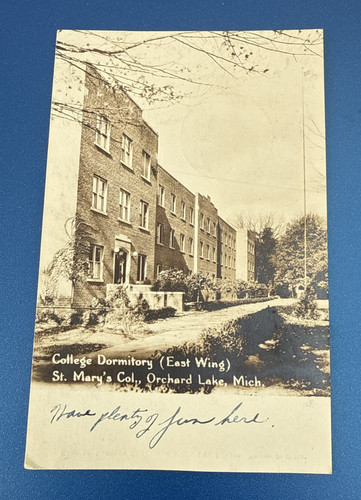 College Dormitory (East Wing)
St. Mary's Col., Orchard Lake, Mich.
Have plenty of fun here.